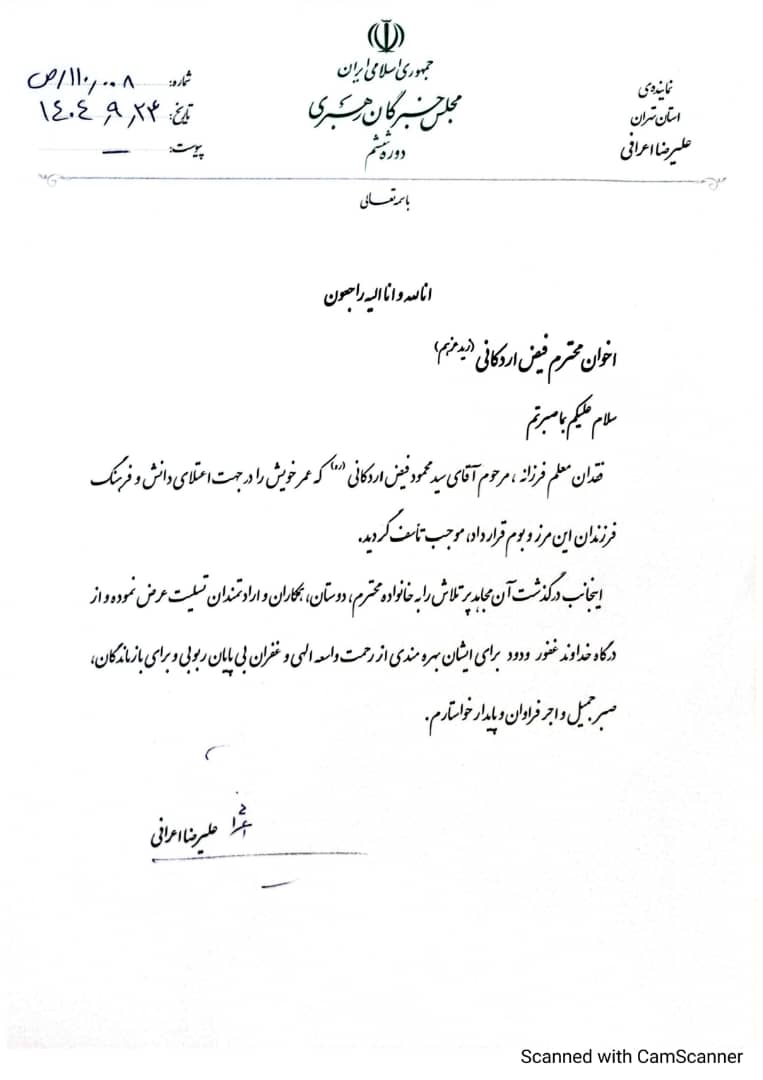 جمهوری اسلامی ایران
مجلس خبرگان رهبری
دوره ششم
نماینده‌ی
استان تهران
علیرضا اعرافی
شماره: ۱۱۰/۰۰۸/ص
تاریخ: ۱۴۰۴/۹/۲۴
پیوست: —
باسمه تعالی
انا لله و انا الیه راجعون
اخوان محترم فیض اردکانی (زید عزهم)
سلام علیکم بما صبرتم
فقدان معلم فرزانه، مرحوم آقای سید محمود فیض اردکانی (ره) که عمر خویش را در جهت اعتلای دانش و فرهنگ
فرزندان این مرز و بوم قرار داد، موجب تأسف گردید.
اینجانب درگذشت آن مجاهد پرتلاش را به خانواده محترم، دوستان، همکاران و ارادتمندان تسلیت عرض نموده و از
درگاه خداوند غفور ودود برای ایشان بهره مندی از رحمت واسعه الهی و غفران بی پایان ربوبی و برای بازماندگان،
صبر جمیل و اجر فراوان و پایدار خواستارم.
علیرضا اعرافی
Scanned with CamScanner